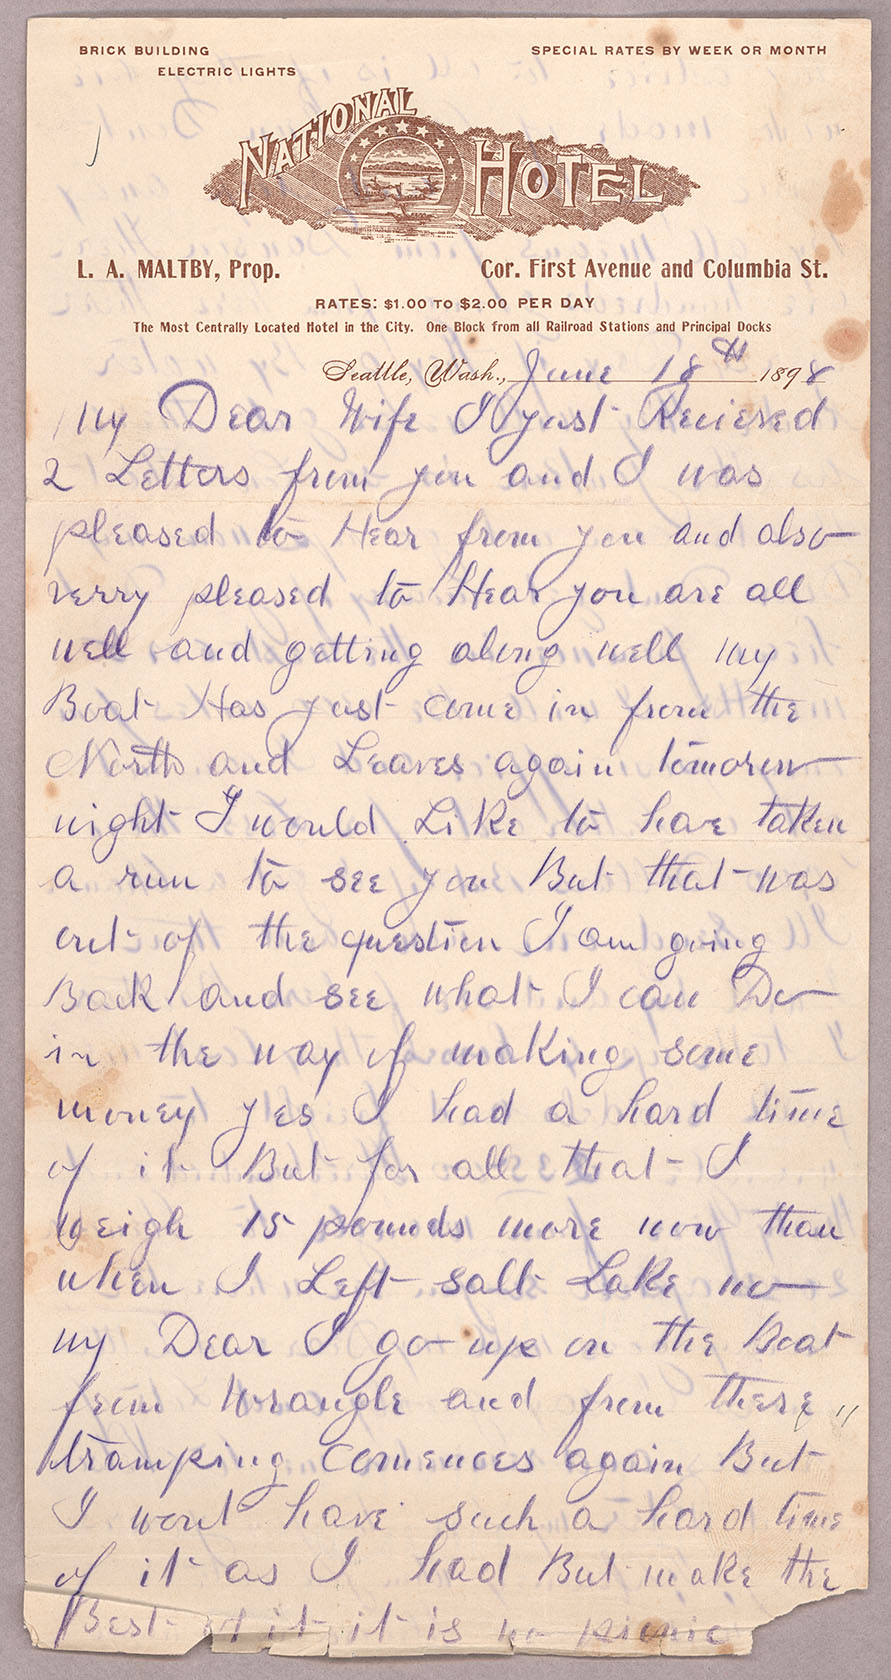 BRICK BUILDING
ELECTRIC LIGHTS
SPECIAL RATES BY WEEK OR MONTH
NATIONAL HOTEL
L. A. MALTBY, Prop.
Cor. First Avenue and Columbia St.
RATES: $1.00 TO $2.00 PER DAY
The Most Centrally Located Hotel in the City. One Block from all Railroad Stations and Principal Docks
Seattle, Wash., June 18th 1898
My Dear Wife I just Recieved
2 Letters from you and I was
pleased to Hear from you and also
verry pleased to Hear you are all
well and getting along well my
Boat Has just come in from the
North and Leaves again tomorow
night I would Like to have taken
a run to see you But that was
out of the question I am going
Back and see what I can Do
in the way of making some
money yes I had a hard time
of it But for all that I
weigh 15 pounds more now than
when I Left salt Lake no
my Dear I go up on the Boat
from Wrangle and from there
tramping comences again But
I wont have such a hard time
of it as I had But make the
Best of it it is no picnic